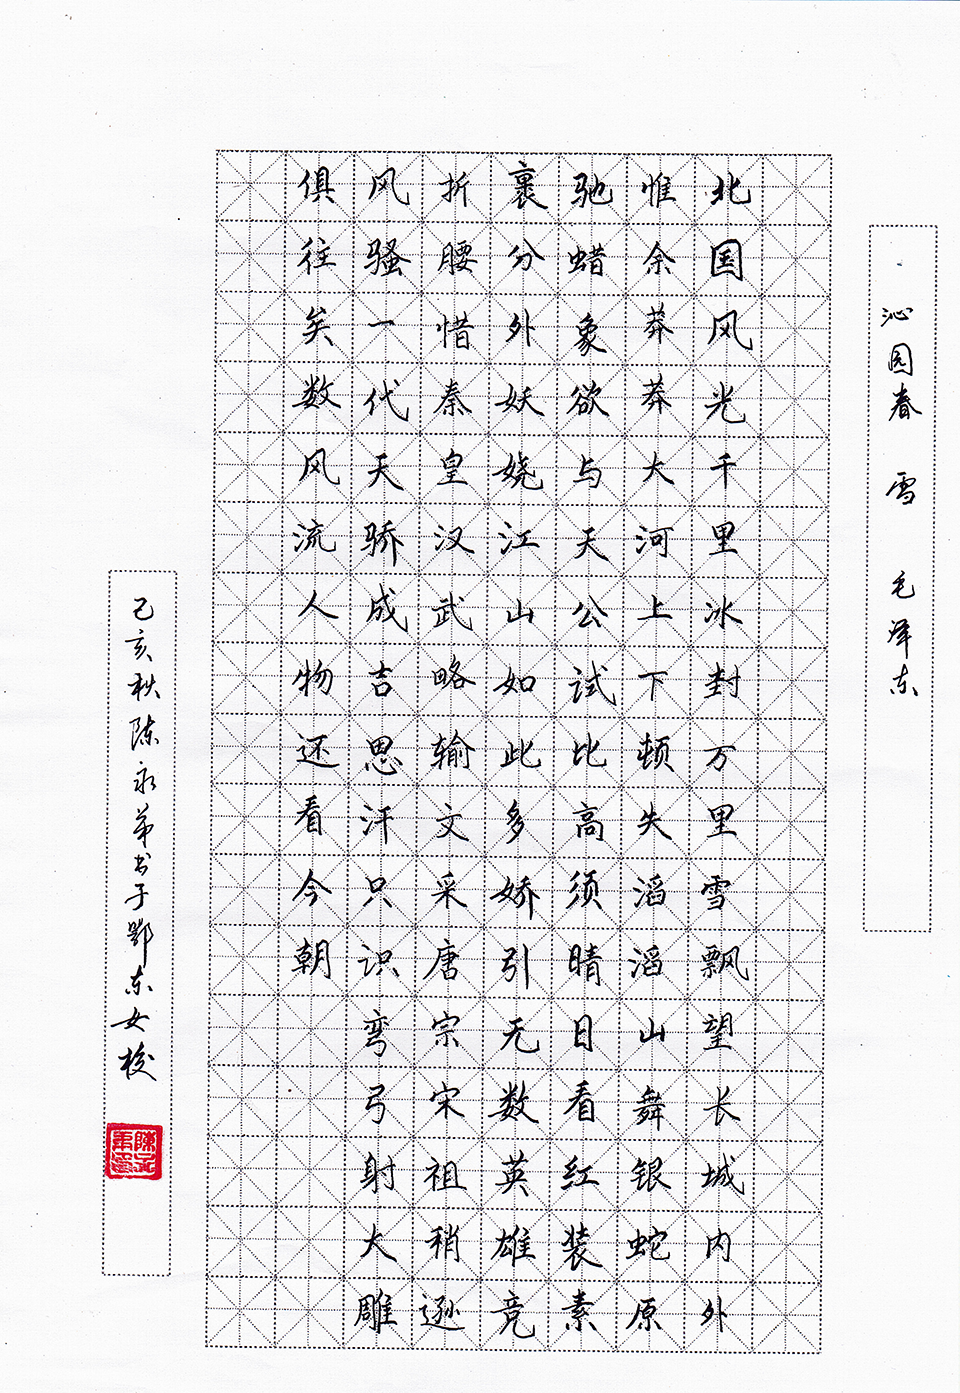 沁园春 雪 毛泽东
北国风光千里冰封万里雪飘望长城内外
惟余莽莽大河上下顿失滔滔山舞银蛇原
驰蜡象欲与天公试比高须晴日看红装素
裹分外妖娆江山如此多娇引无数英雄竞
折腰惜秦皇汉武略输文采唐宗宋祖稍逊
风骚一代天骄成吉思汗只识弯弓射大雕
俱往矣数风流人物还看今朝
己亥秋陈永弟书于鄂东女校